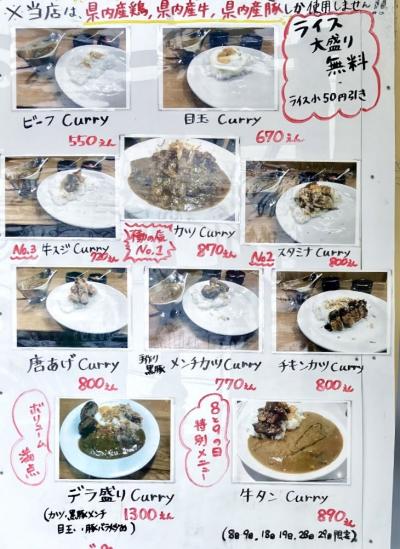 ※当店は、県内産鶏,県内産牛,県内産豚しか使用しません
ライス
大盛り
無料
ライス小50円引き
ビーフ Curry
550えん
目玉 Curry
670えん
No.3 牛スジ Curry
720えん
No.1
カツ Curry
870えん
No2
スタミナ Curry
800えん
唐あげ Curry
800えん
手作り
黒豚
メンチカツ Curry
770えん
チキンカツ Curry
800えん
ボリューム
満点
デラ盛り Curry
1300えん
8と9の日
特別メニュー
牛タン Curry
890えん
(8日9日,18日19日,28日29日限定)